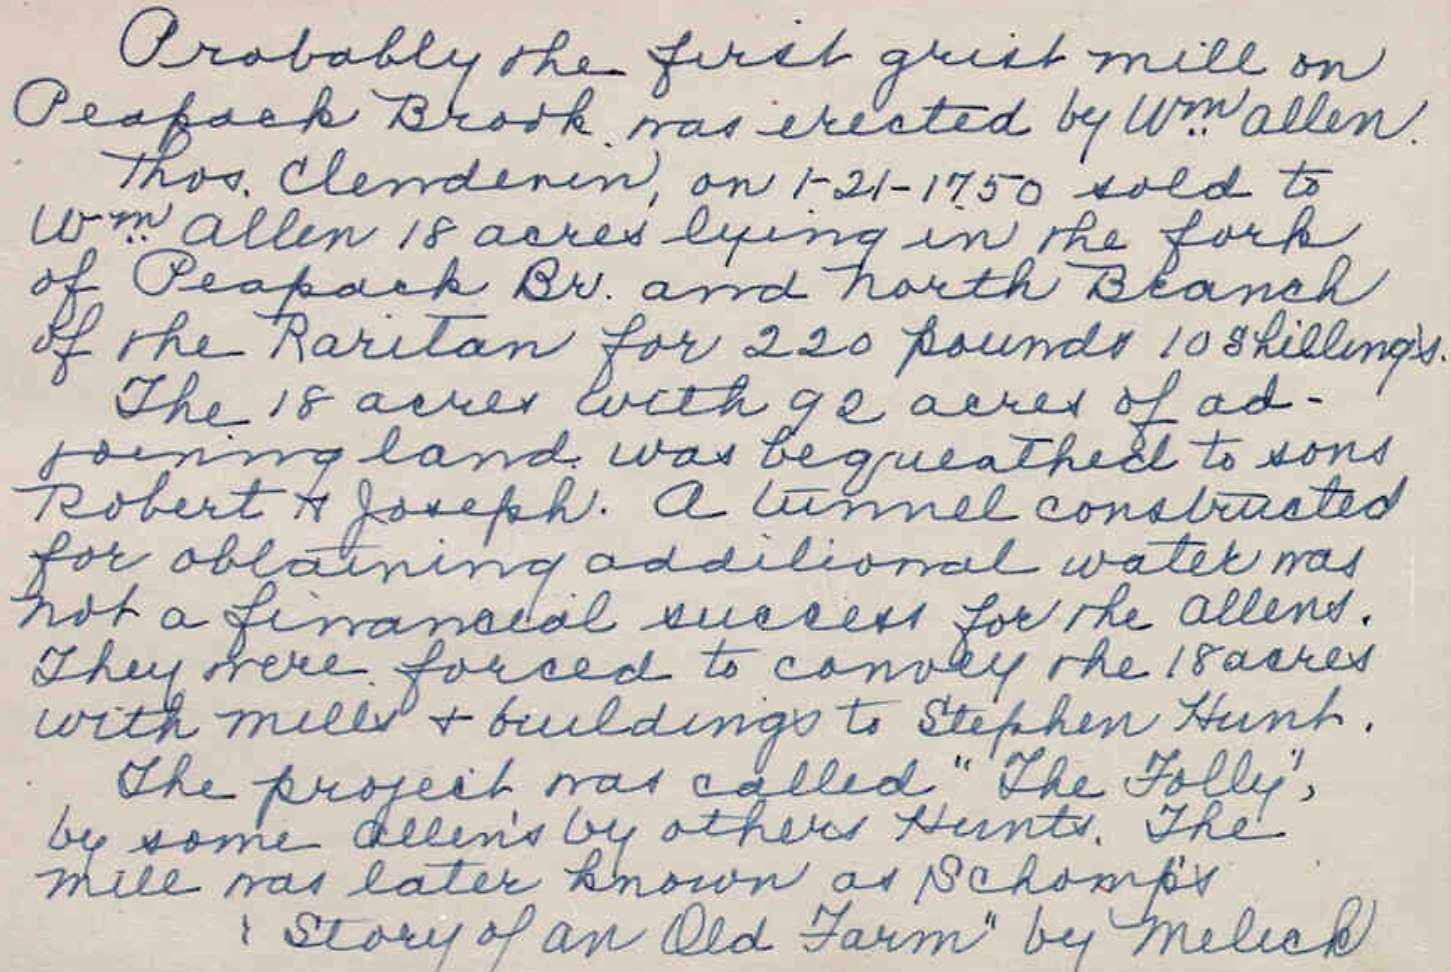 Probably the first grist mill on
Peapack Brook was erected by Wm. Allen.
Thos. Clendenin, on 1-21-1750 sold to
Wm. Allen 18 acres lying in the fork
of Peapack Br. and North Branch
of the Raritan for 220 pounds 10 shillings.
The 18 acres with 92 acres of ad-
joining land was bequeathed to sons
Robert & Joseph. A tunnel constructed
for obtaining additional water was
not a financial success for the Allens.
They were forced to convey the 18 acres
with mills + buildings to Stephen Hunt.
The project was called "The Folly",
by some Allen's by others Hunts. The
mill was later known as Schomp's
"Story of an Old Farm" by Melick